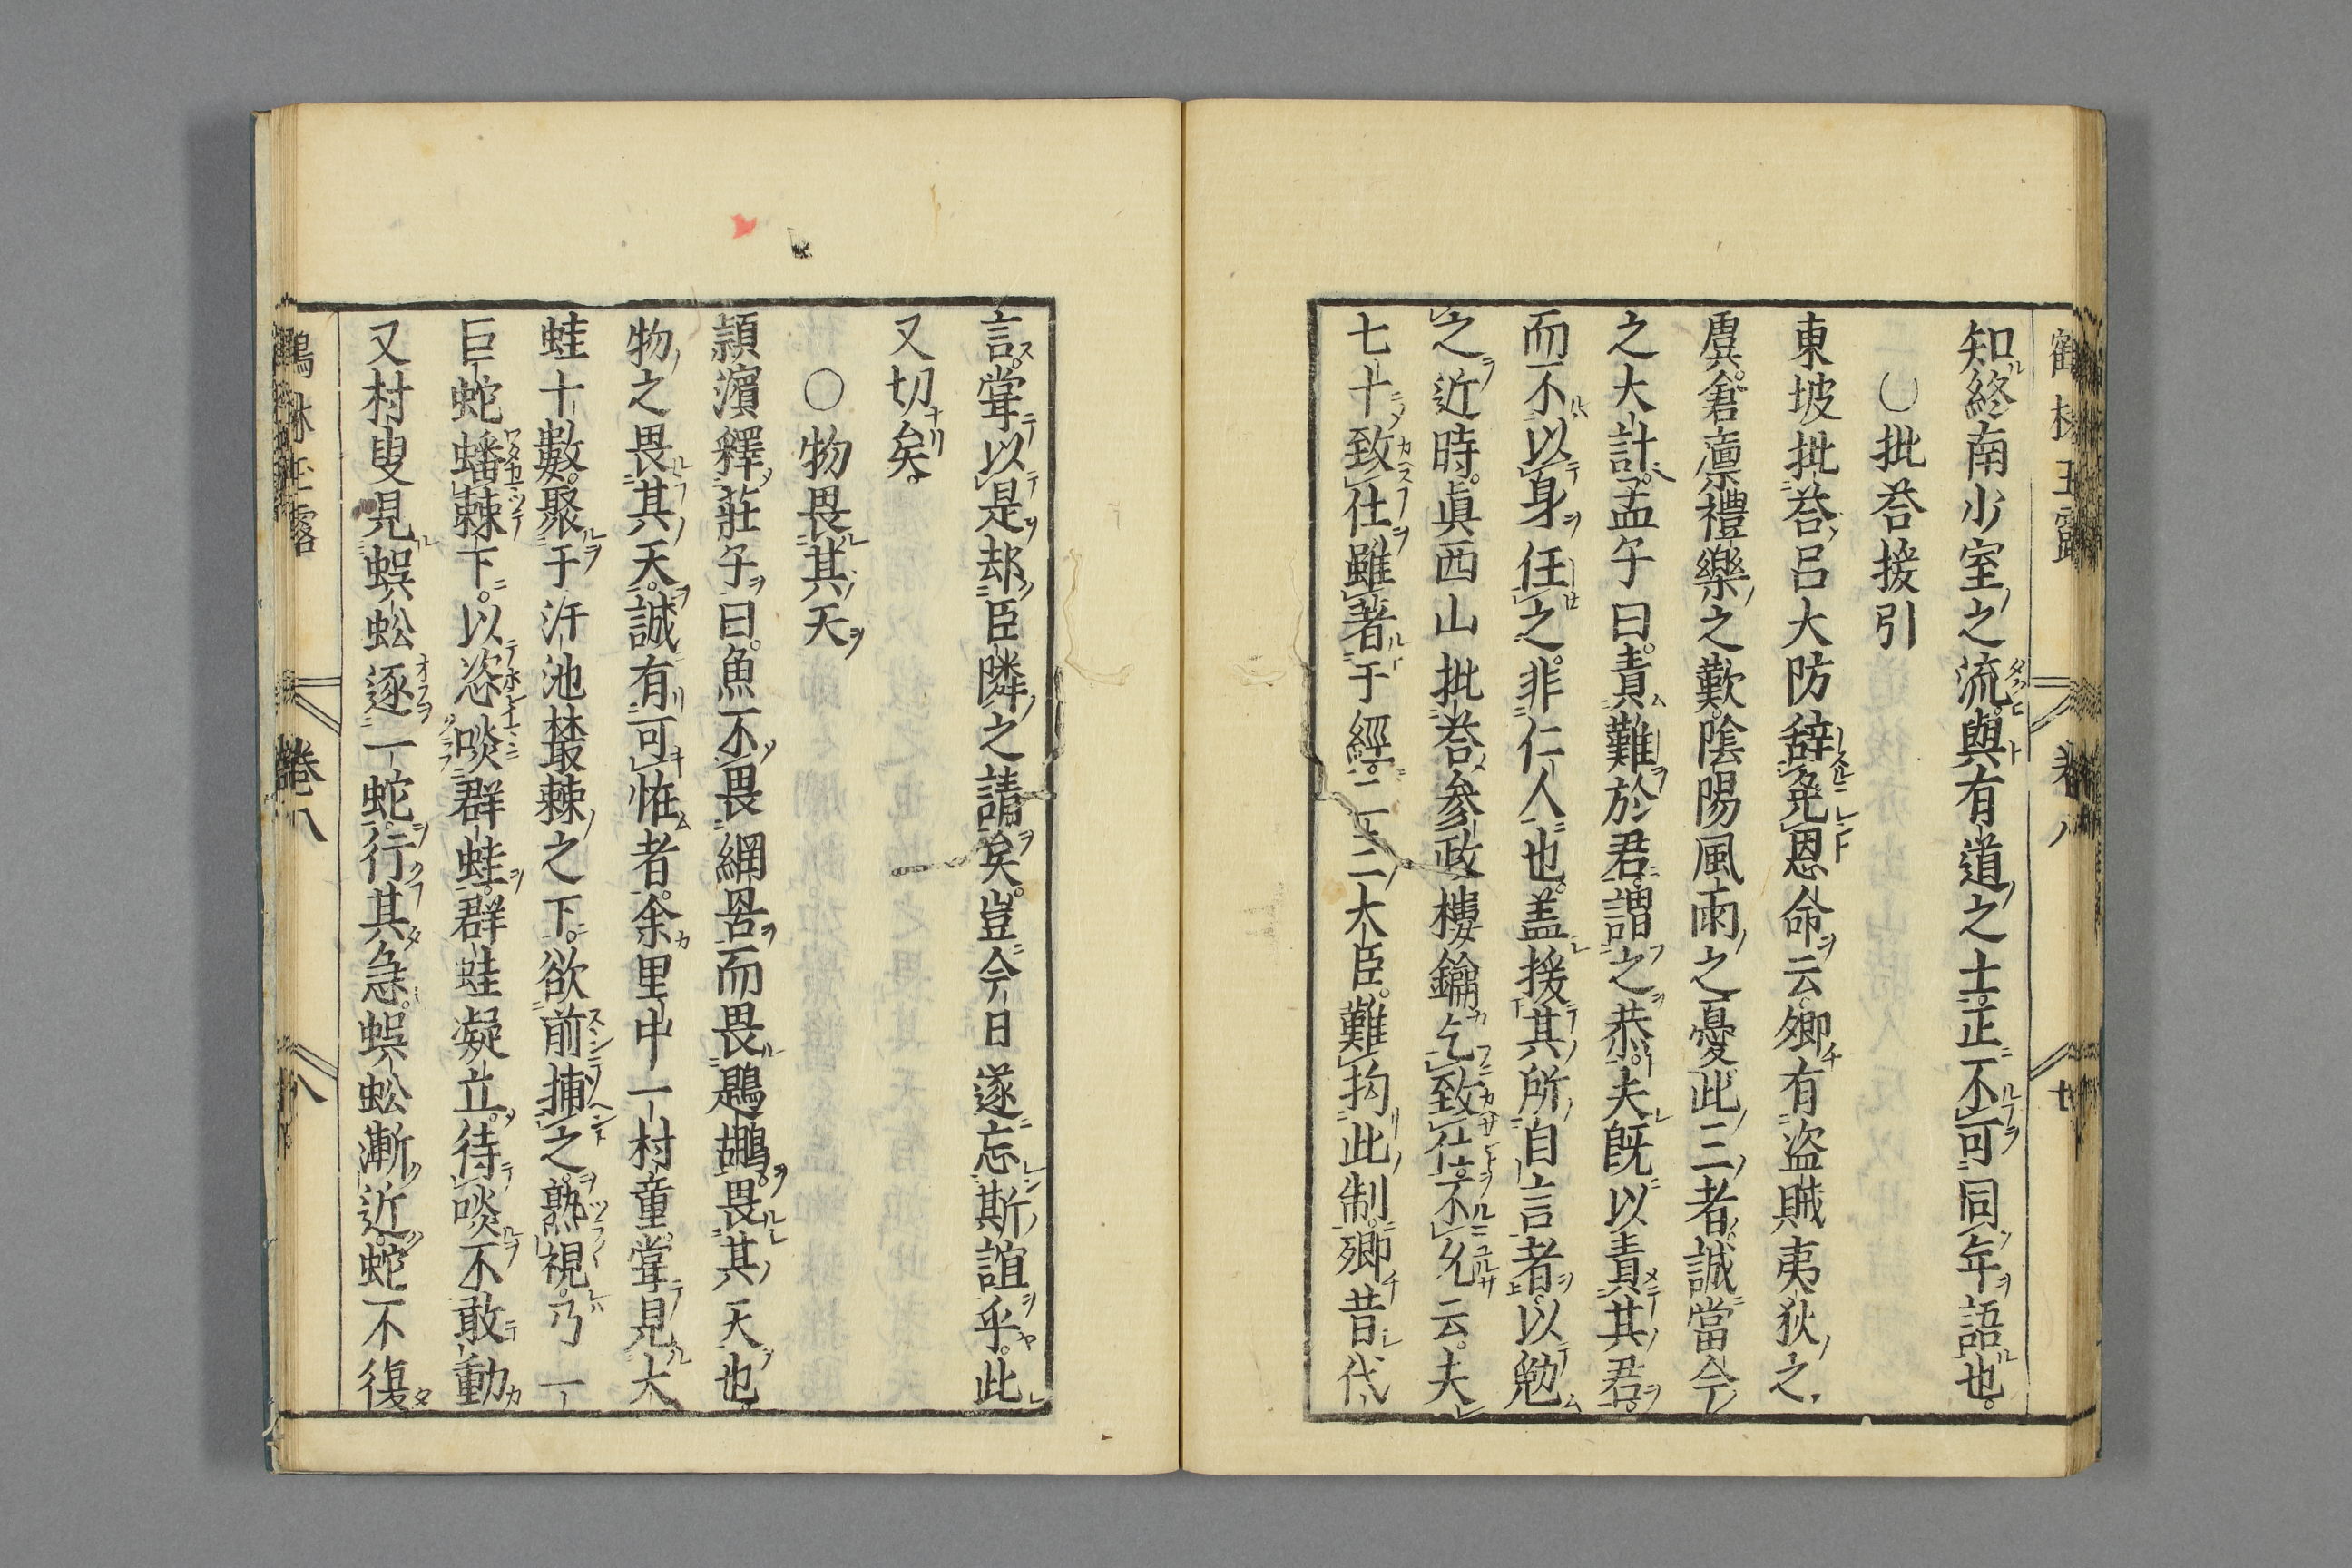 知終南少室之流與有道之士正不可同年語也
○批荅援引
東坡批荅呂大防辞免恩命云卿有盗賊夷狄之
虞倉廩禮樂之歎陰陽風雨之憂此三者誠當今
之大計孟子曰責難於君謂之恭夫既以責其君
而不以身任之非仁人也盖援其所自言者以勉
之近時真西山批荅参政樓鑰乞致仕不允云夫
七十致仕雖著于經二三大臣難拘此制卿昔代
言甞以是却臣隣之請矣豈今日遂忘斯誼乎此
又切矣
○物畏其天
頴濱釋莊子曰魚不畏網罟而畏鵜鶘畏其天也
物之畏其天誠有可恠者余里中一村童甞見大
蛙十數聚于汙池叢棘之下欲前捕之熟視乃一
巨蛇蟠棘下以恣啖群蛙群蛙凝立待啖不敢動
又村叟見蜈蚣逐一蛇行其急蜈蚣漸近蛇不復
鶴林玉露 卷八